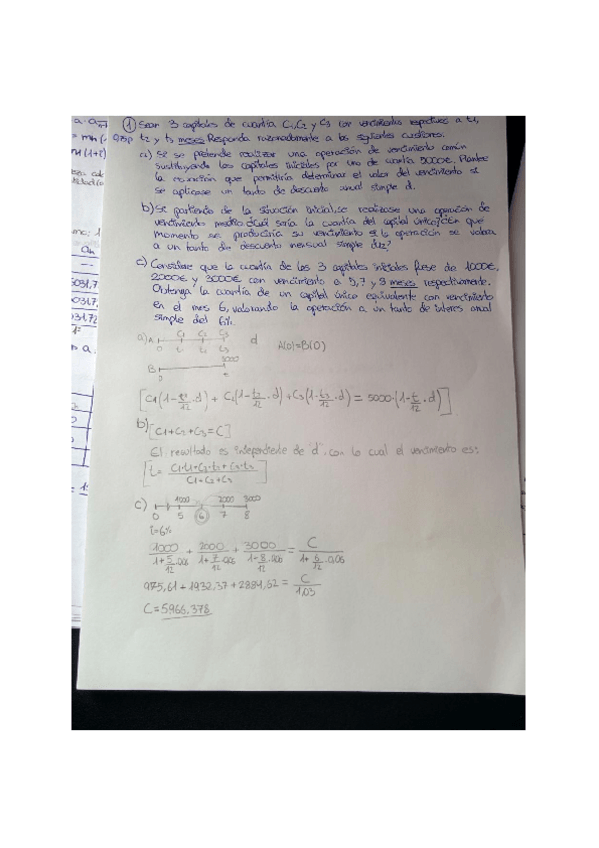 ① Sean 3 capitales de cuantía C1, C2 y C3 con vencimientos respectivos a t1,
t2 y t3 meses. Responda razonadamente a las siguientes cuestiones:
a) Si se pretende realizar una operación de vencimiento común
sustituyendo los capitales iniciales por uno de cuantía 5000€. Plantee
la ecuación que permitiría determinar el valor del vencimiento si
se aplicase un tanto de descuento anual simple d.
b) Si partiendo de la situación inicial, se realizase una operación de
vencimiento medio ¿Cuál sería la cuantía del capital único? ¿En que
momento se produciría su vencimiento si la operación se valora
a un tanto de descuento mensual simple
c) Considere que la cuantía de los 3 capitales iniciales fuese de 1000€,
2000€ y 3000€ con vencimiento a 5, 7 y 8 meses respectivamente.
Obtenga la cuantía de un capital único equivalente con vencimiento
en el mes 6, valorando la operación a un tanto de interes anual
simple del 6%.
a) A C1 C2 C3 d
0 t1 t2 t3 A(0)=B(0)
B 5000
0 t
[C1(1-t1/12·d) + C2(1-t2/12·d) + C3(1-t3/12·d) = 5000·(1-t/12·d)]
b) [C1+C2+C3=C]
El resultado es independiente de "d", con lo cual el vencimiento es:
[t= C1·t1+C2·t2+C3·t3 / C1+C2+C3]
c) 1000 2000 3000
0 5 6 7 8
i=6%
1000/1+5/12·0,06 + 2000/1+7/12·0,06 + 3000/1+8/12·0,06 = C/1+6/12·0,06
975,61+1932,37+2884,62 = C/1,03
C=5966,378